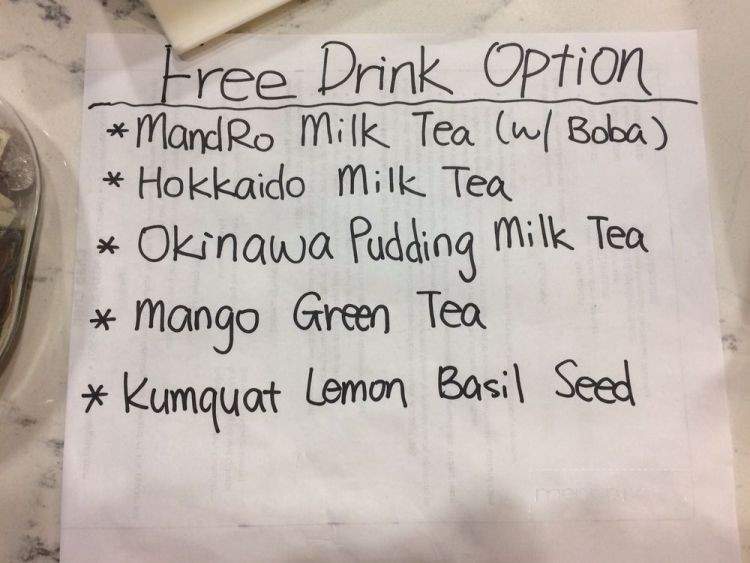 Free Drink Option
* MandRo Milk Tea (w/ Boba)
* Hokkaido Milk Tea
* Okinawa Pudding Milk Tea
* Mango Green Tea
* Kumquat Lemon Basil Seed